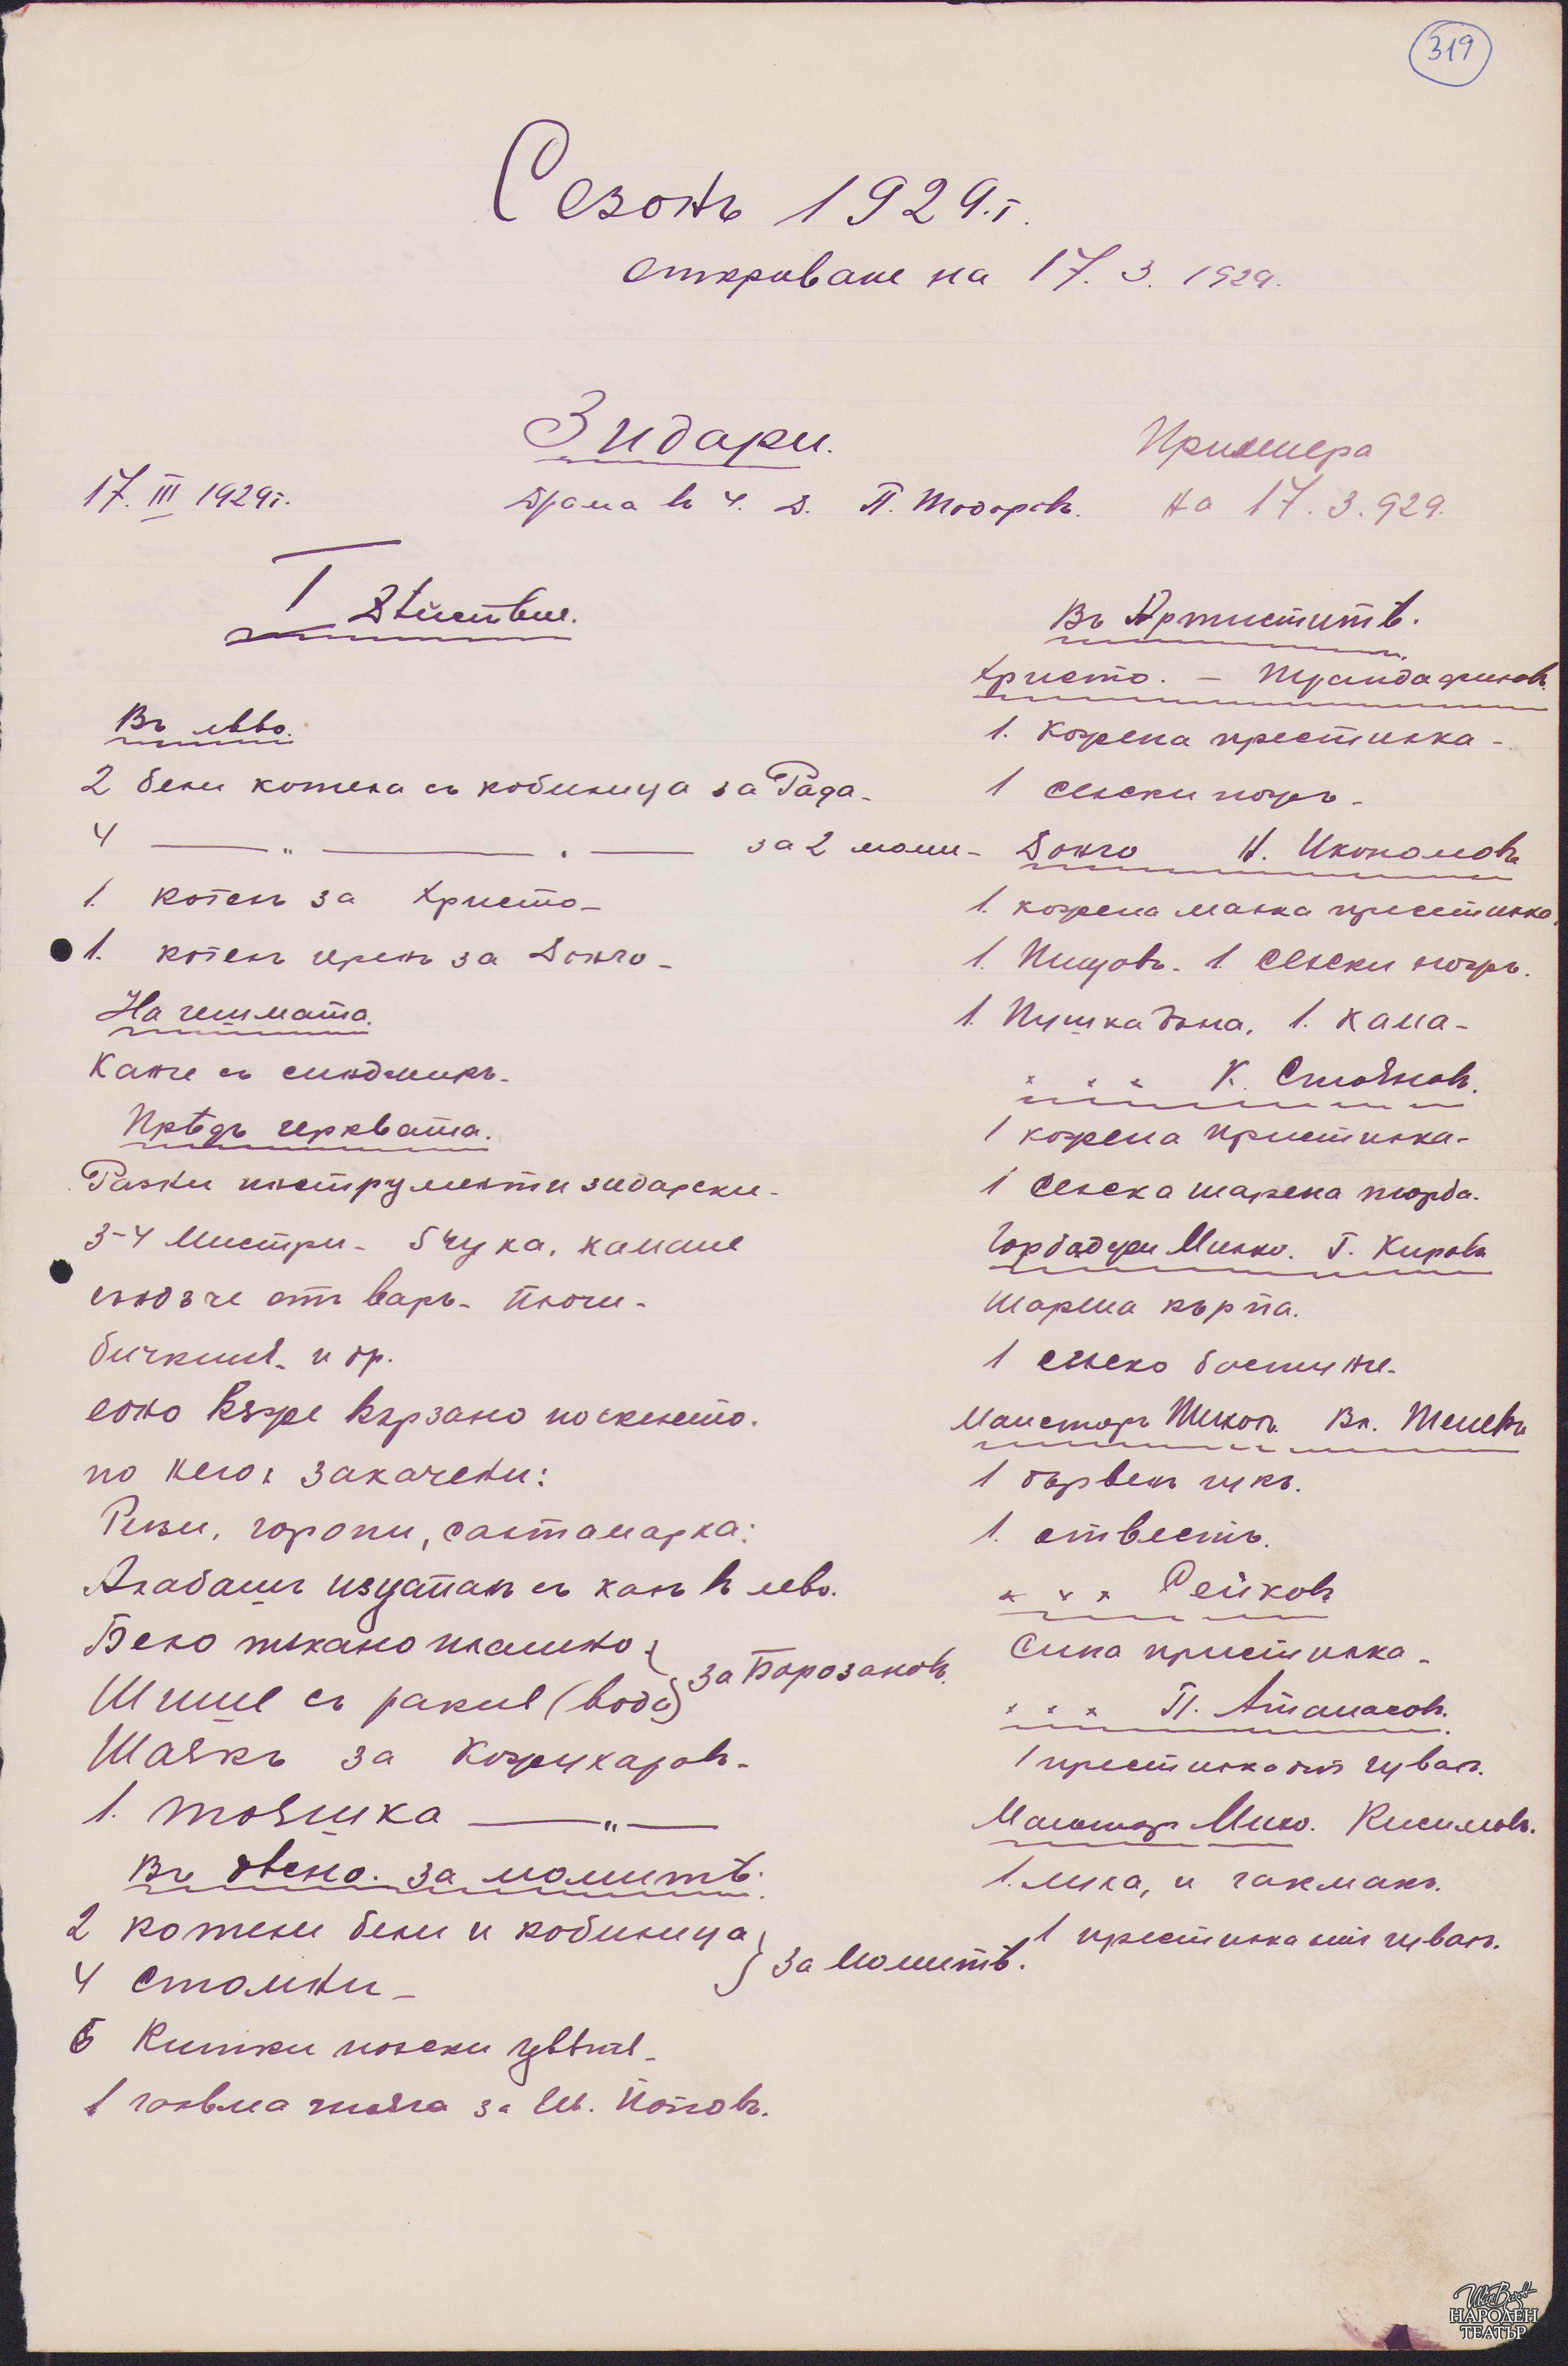 319
Сезонъ 1929.г.
откриване на 17. 3. 1929.
Зидари.
Примиера
17. III 1929г.
Драма въ 4. д. П. Тодоровъ.
на 17. 3. 929.
I Действие.
Въ лѣво.
2 бели котела съ кобилица за Рада -
4 — „ — . — за 2 моми -
1. котелъ за Христо -
1. котелъ черенъ за Дончо -
На чешмата.
Канче съ синджиръ -
Прѣдъ черквата.
Разни инструменти зидарски -
3-4 Мистри - 5 чука, камане
сандъче отъ варъ - плочи -
бичкия - и др.
едно Вѫже вързано по скелето.
по него закачени:
Ризи, горопи, салтамарка:
Алабашъ изцапанъ съ калъ въ лево.
Бело тъкано платно
Шише съ ракия (вода)
} за Борозановъ.
Шаякъ за Кожухаровъ -
1. тояшка — „ —
Въ дѣсно. за момитѣ.
2 котели бели и кобилица
4 стомни -
} за Момитѣ.
6 Китки полски цвѣтя -
1 голѣма тояга за Ив. Поповъ.
Въ Артиститѣ.
Христо. - Трандафиловъ.
1. Кожена престилка -
1 селски ножъ -
Дончо Н. Икономовъ
1. кожена малка престилка
1. Пищовъ - 1. селски ножъ.
1. Пушка дълга, 1. кама -
× × × К. Стояновъ.
1 кожена пристилка -
1 селска шарена торба.
Горбадуки Милко. Г. Кировъ
Шарена кърпа.
1 селско бостунче -
Маисторъ Никола Вл. Теневъ
1 дървенъ чукъ.
1. отвестъ.
× × × Рейковъ
Синя пристилка -
× × × П. Атанасовъ.
1 престилка отъ чувалъ.
Маисторъ Мико. Кисимовъ.
1. лула, и чакмакъ.
1 престилка отъ чувалъ.
Иван Вазов
НАРОДЕН
ТЕАТЪР